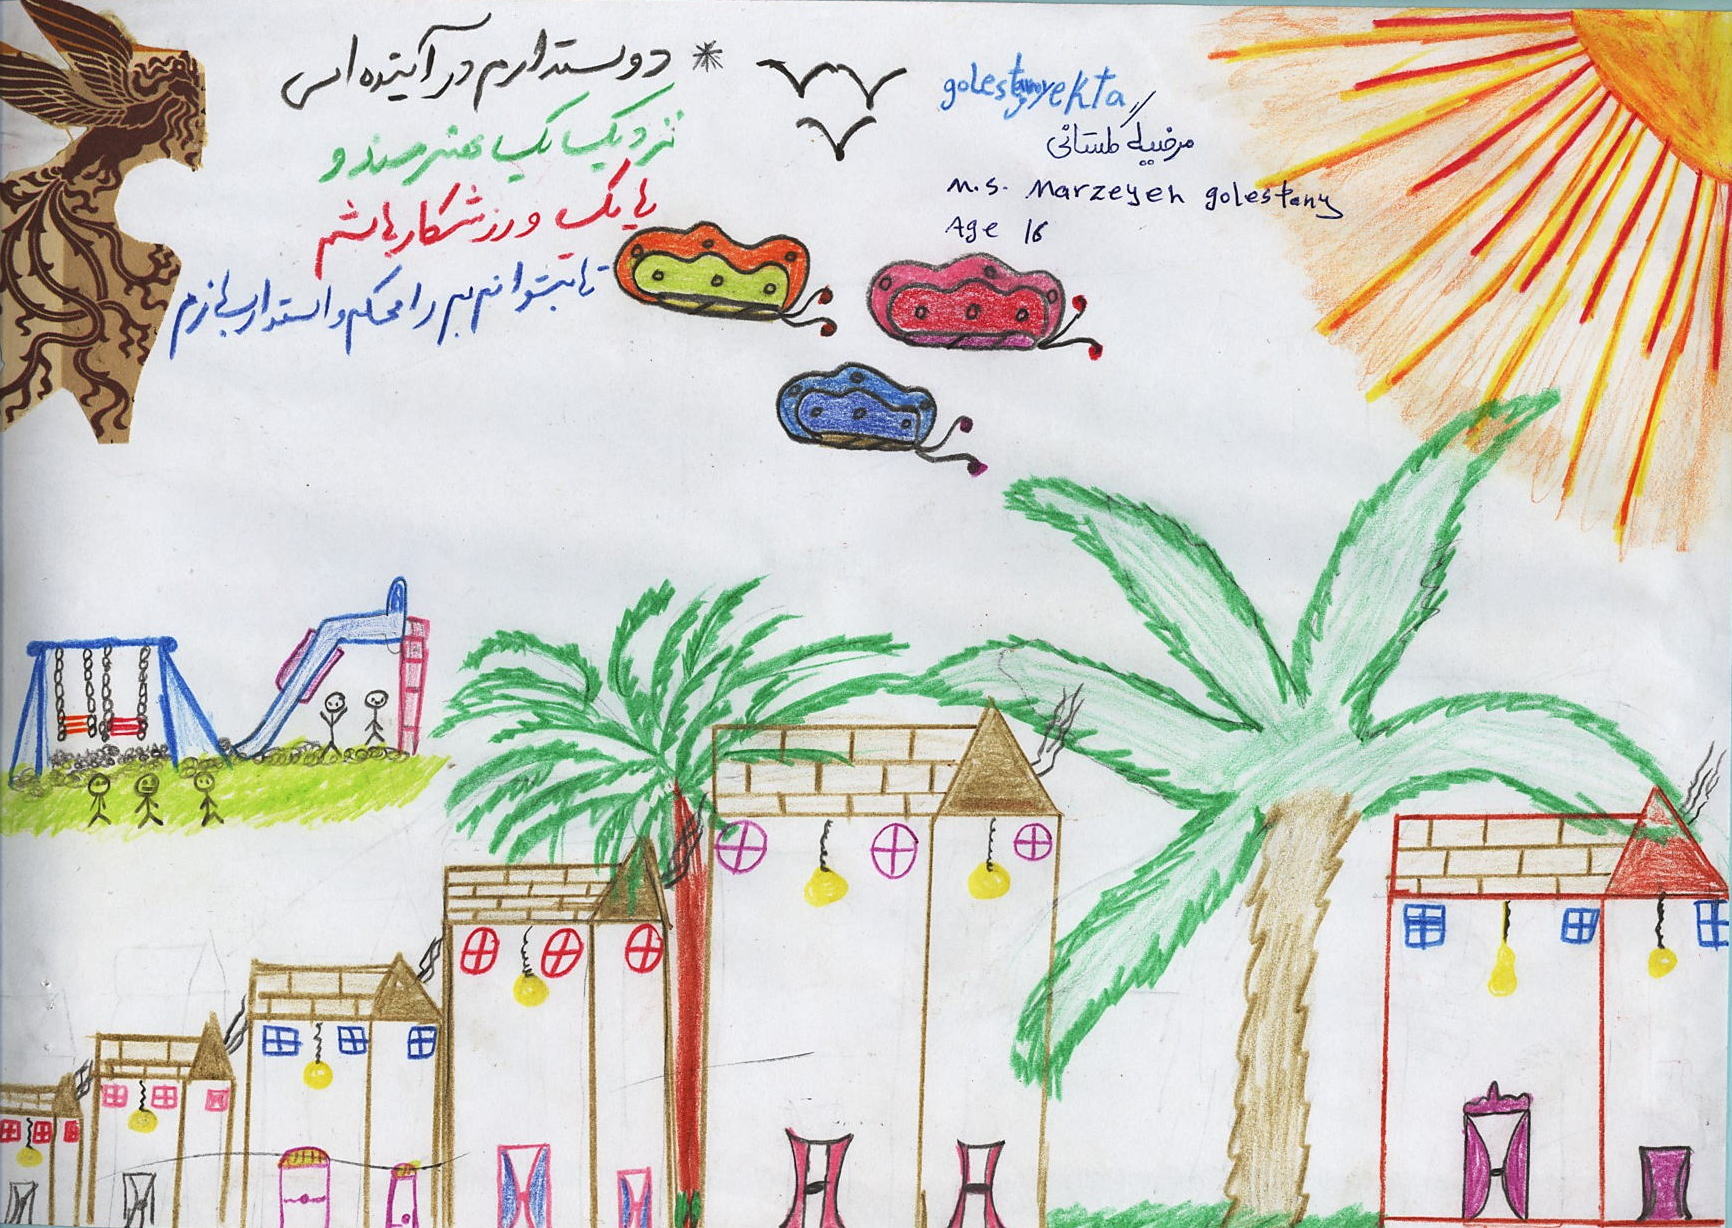 * دوستدارم در آینده ای
نزدیک یک هنرمند و
یا یک ورزشکار باشم
تا بتوانم بم را محکم و استوار بسازم
golestanyekta
مرضیه گلستانی
M.S. Marzeyeh golestany
Age 16